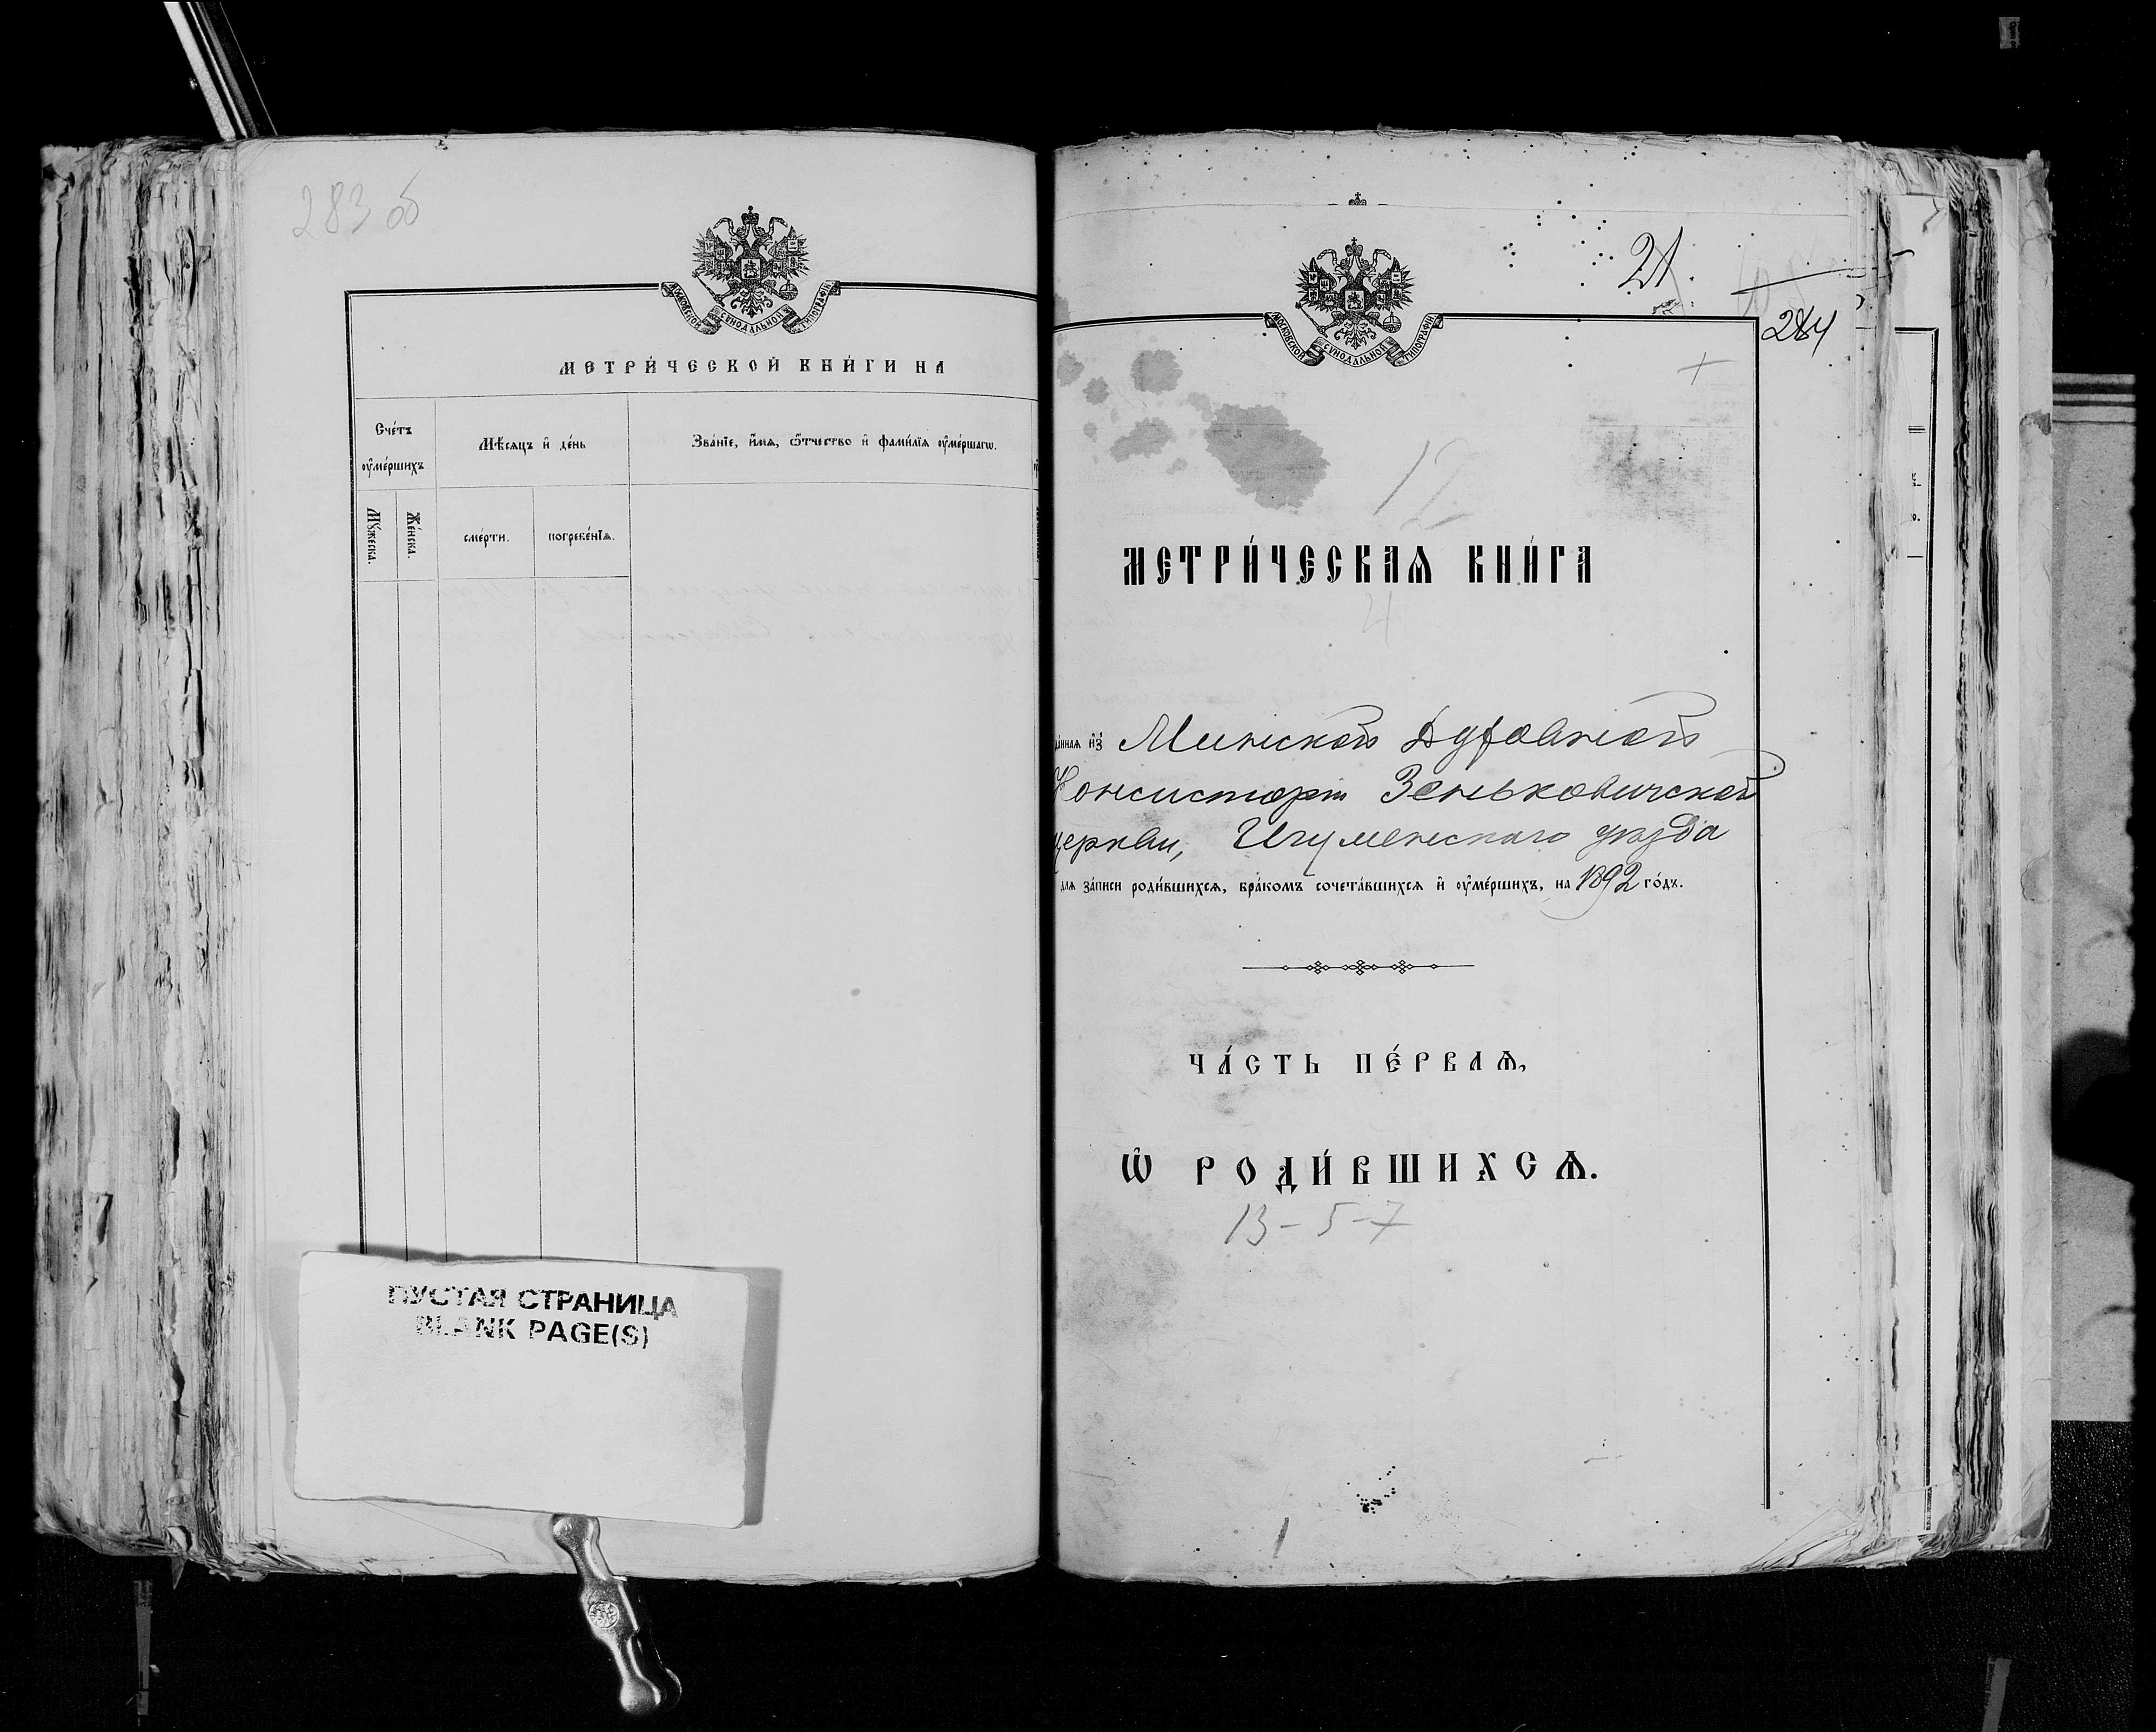 283 об
МОСКОВСКОЙ СѴНОДАЛЬНОЙ ТИПОГРАФІИ
МЕТРИ́ЧЕСКОЙ КНИ́ГИ НА
Сче́тъ оу҆ме́ршихъ
Мѣ́сяцъ и҆ де́нь
Зва́нїе, и҆́мѧ, ѻ҆́тчество и҆ фами́лїѧ оу҆ме́ршагѡ.
Мꙋ́жеска.
Же́нска.
сме́рти.
погребе́нїѧ.
ПУСТАЯ СТРАНИЦА
BLANK PAGE(S)
21.
284
МОСКОВСКОЙ СѴНОДАЛЬНОЙ ТИПОГРАФІИ
12
МЕТРИ́ЧЕСКАѦ КНИ́ГА
4
да́ннаѧ и҆зъ Минской Духовной
Консисторіи Зеньковичской
церкви, Игуменскаго уѣзда
для за́писи роди́вшихсѧ, бра́комъ сочета́вшихсѧ и҆ оу҆ме́ршихъ, на 1892 го́дъ.
ЧА́СТЬ ПЕ́РВАѦ,
Ѡ҆ РОДИ́ВШИХСѦ.
13-5-7